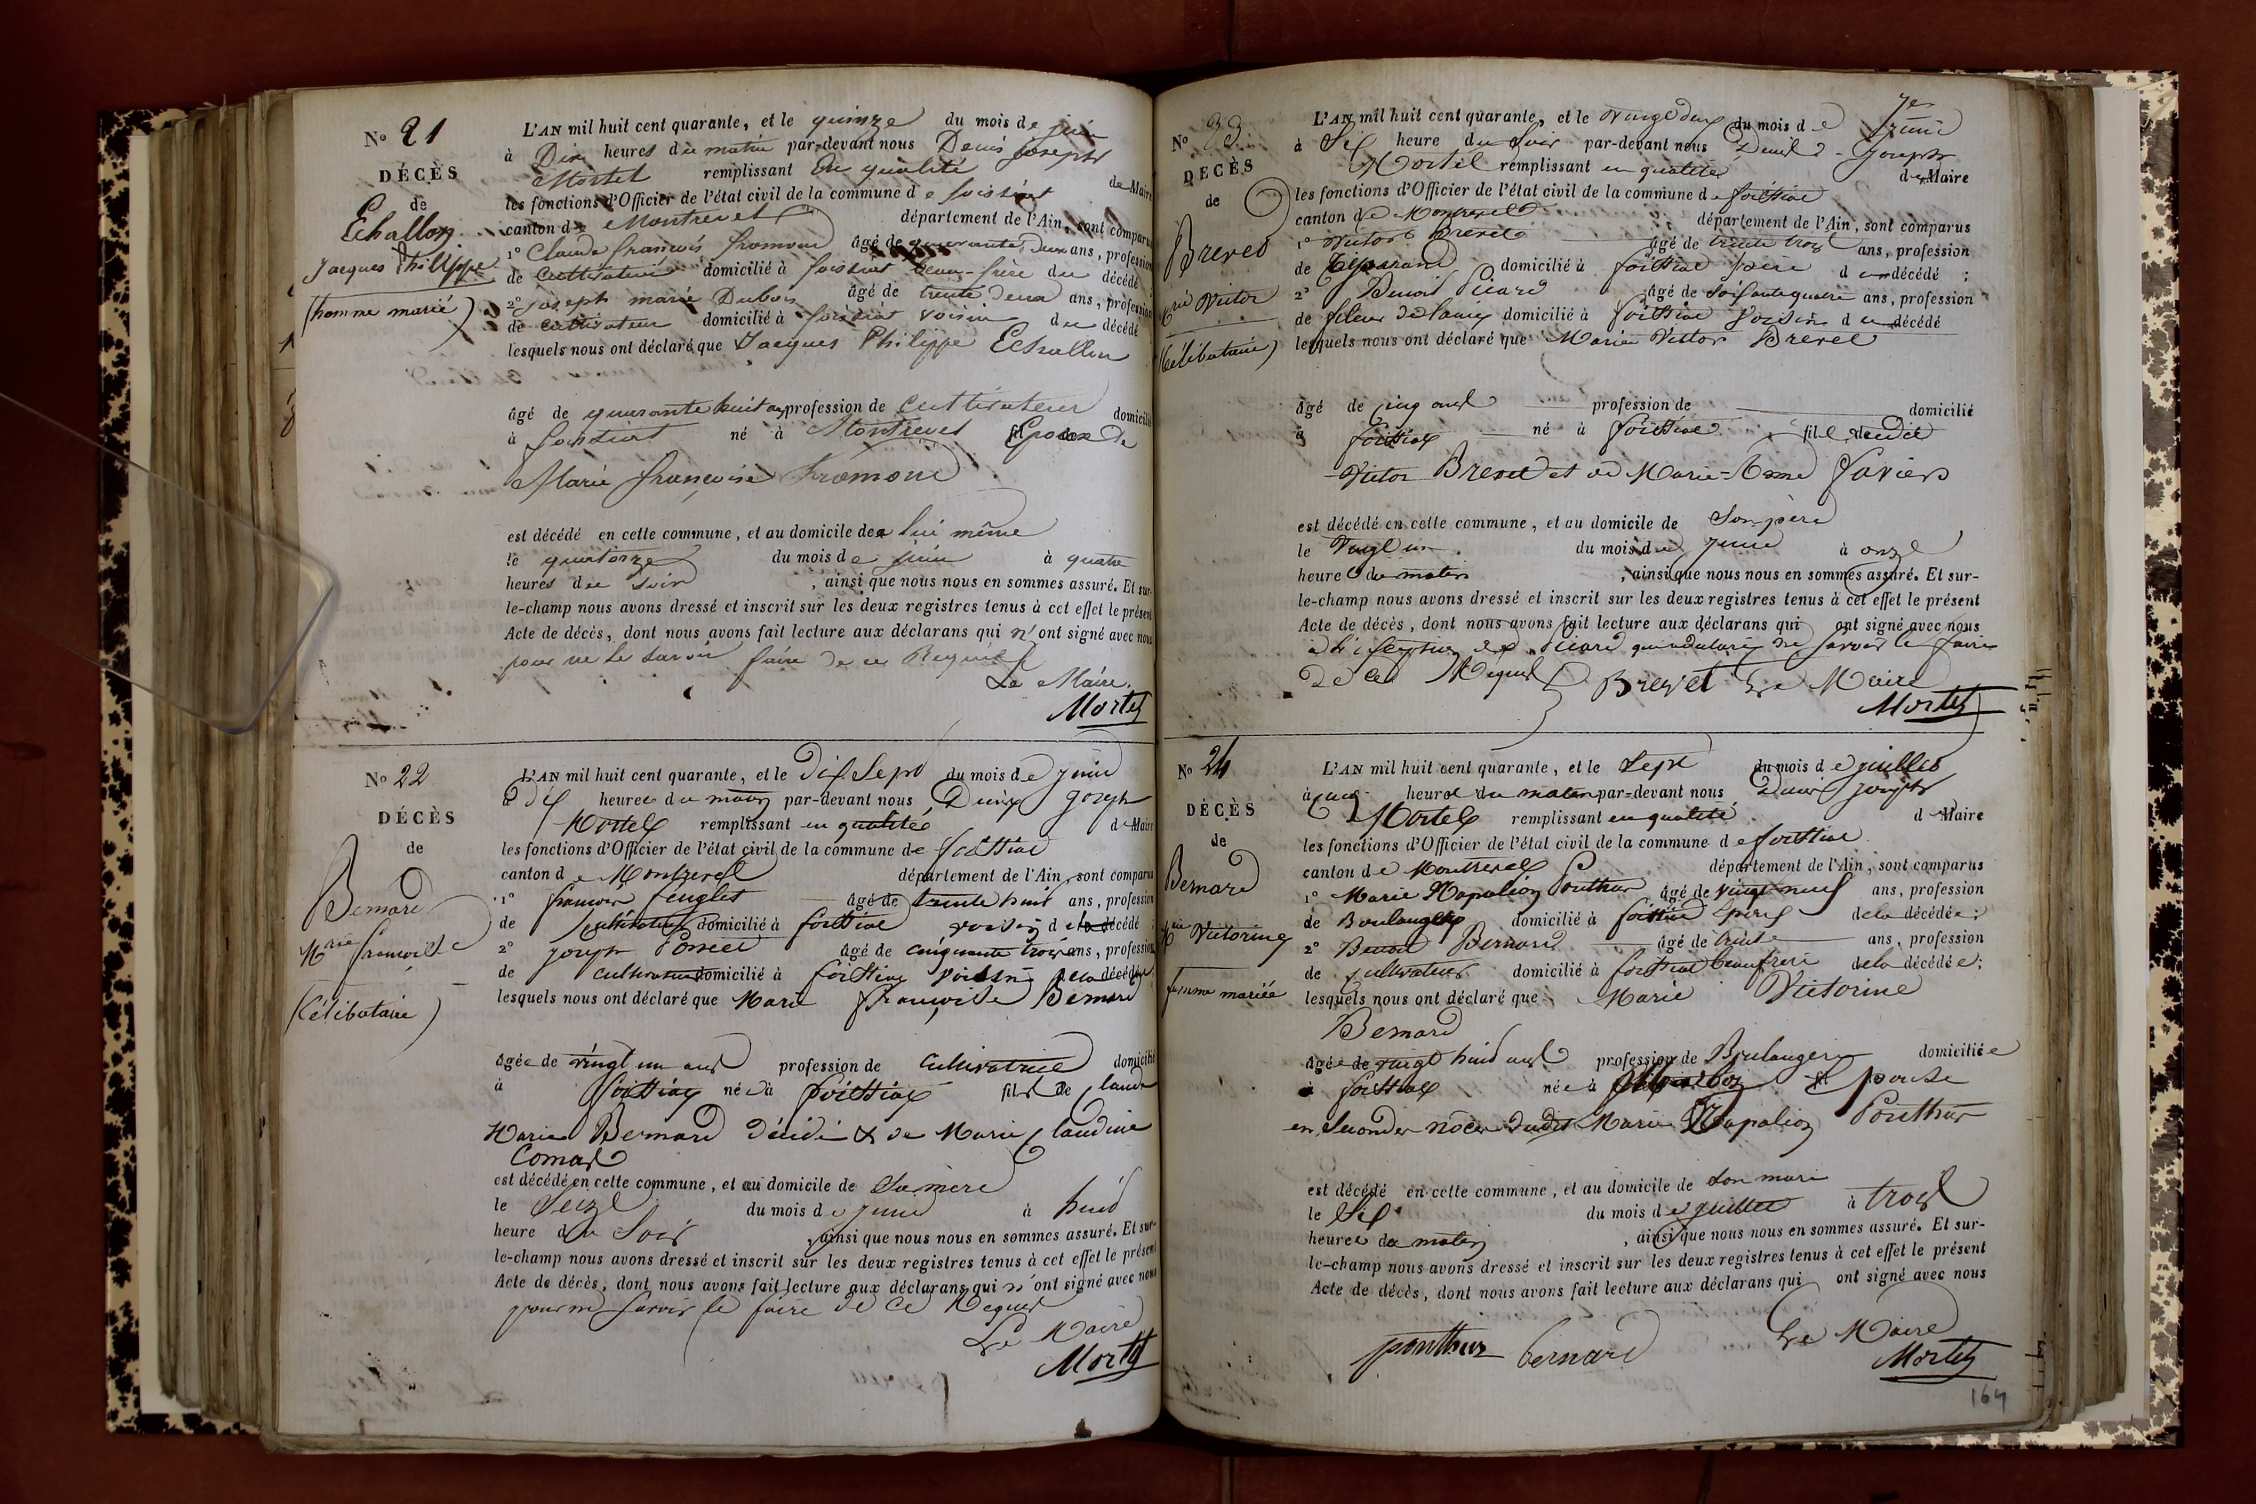 N° 21
DÉCÈS
de
Echallon
Jacques Philippe
(homme marié)
L'AN mil huit cent quarante, et le quinze du mois de juin
à Dix heures du matin par-devant nous Denis Joseph
Mortel remplissant en qualité de Maire
les fonctions d'Officier de l'état civil de la commune de foissiat
canton de Montrevel département de l'Ain, sont comparus
1° Claude françois fromont âgé de quarante deux ans, profession
de cultivateur domicilié à foissiat beau-frère du décédé
2° joseph marie Dubois âgé de trente deux ans, profession
de cultivateur domicilié à foissiat voisin du décédé
lesquels nous ont déclaré que Jacques Philippe Echallon
âgé de quarante huit ans profession de cultivateur domicilié
à foissiat né à Montrevel Epoux de
Marie françoise fromont
est décédé en cette commune, et au domicile de lui même
le quatorze du mois de juin à quatre
heures du soir, ainsi que nous nous en sommes assuré. Et sur-
le-champ nous avons dressé et inscrit sur les deux registres tenus à cet effet le présent
Acte de décès, dont nous avons fait lecture aux déclarans qui n'ont signé avec nous
pour ne le savoir faire de ce Requis
Le Maire.
Mortel
N° 22
DÉCÈS
de
Bernard
Mrie françoise
(Célibataire)
L'AN mil huit cent quarante, et le dix sept du mois de juin
à dix heures du matin par-devant nous Denis joseph
Mortel remplissant en qualité de Maire
les fonctions d'Officier de l'état civil de la commune de foissiat
canton de Montrevel département de l'Ain, sont comparus
1° françois âgé de trente huit ans, profession
de cultivateur domicilié à foissiat voisin de la décédé
2° joseph Poncet âgé de cinquante trois ans, profession
de cultivateur domicilié à foissiat voisin de la décédée
lesquels nous ont déclaré que Marie françoise Bernard
âgée de vingt un ans profession de cultivatrice domicilié
à foissiat née à foissiat fille de Claude
Marie Bernard décédé & de Marie Claudine
Comas
est décédé en cette commune, et au domicile de sa mère
le seize du mois de juin à huit
heure du soir, ainsi que nous nous en sommes assuré. Et sur-
le-champ nous avons dressé et inscrit sur les deux registres tenus à cet effet le présent
Acte de décès, dont nous avons fait lecture aux déclarans qui n'ont signé avec nous
pour ne savoir le faire de ce Requis
Le Maire
Mortel
N° 23
DÉCÈS
de
Brevet
Mrie Victor
(Célibataire)
L'AN mil huit cent quarante, et le vingt deux du mois de juin
à six heure du soir par-devant nous Denis Joseph
Mortel remplissant en qualité de Maire
les fonctions d'Officier de l'état civil de la commune de foissiat
canton de Montrevel département de l'Ain, sont comparus
1° Victor Brevet âgé de trente trois ans, profession
de Tisserand domicilié à foissiat père du décédé;
2° Benoit Picard âgé de soixante quatre ans, profession
de fileur de laine domicilié à foissiat voisin du décédé
lesquels nous ont déclaré que Marie Victor Brevet
âgé de cinq ans profession de domicilié
à foissiat né à foissiat fils dudit
Victor Brevet et de Marie-Anne favier
est décédé en cette commune, et au domicile de son père
le vingt un du mois de juin à onze
heure du matin, ainsi que nous nous en sommes assuré. Et sur-
le-champ nous avons dressé et inscrit sur les deux registres tenus à cet effet le présent
Acte de décès, dont nous avons fait lecture aux déclarans qui ont signé avec nous
à l'exception de Picard qui a déclaré ne savoir le faire
de ce Requis Brevet Le Maire
Mortel
N° 24
DÉCÈS
de
Bernard
Mrie Victorine
femme mariée
L'AN mil huit cent quarante, et le sept du mois de juillet
à cinq heures du matin par-devant nous Denis joseph
Mortel remplissant en qualité de Maire
les fonctions d'Officier de l'état civil de la commune de foissiat
canton de Montrevel département de l'Ain, sont comparus
1° Marie Napoléon Ponthus âgé de vingt neuf ans, profession
de Boulanger domicilié à foissiat époux de la décédée;
2° Benoit Bernard âgé de trente ans, profession
de cultivateur domicilié à foissiat beau frère de la décédée;
lesquels nous ont déclaré que Marie Victorine
Bernard
âgée de vingt huit ans profession de Boulangère domiciliée
à foissiat née à épouse
en secondes noces dudit Marie Napoléon Ponthus
est décédé en cette commune, et au domicile de son mari
le six du mois de juillet à trois
heures du matin, ainsi que nous nous en sommes assuré. Et sur-
le-champ nous avons dressé et inscrit sur les deux registres tenus à cet effet le présent
Acte de décès, dont nous avons fait lecture aux déclarans qui ont signé avec nous
ponthus bernard Le Maire
Mortel
164